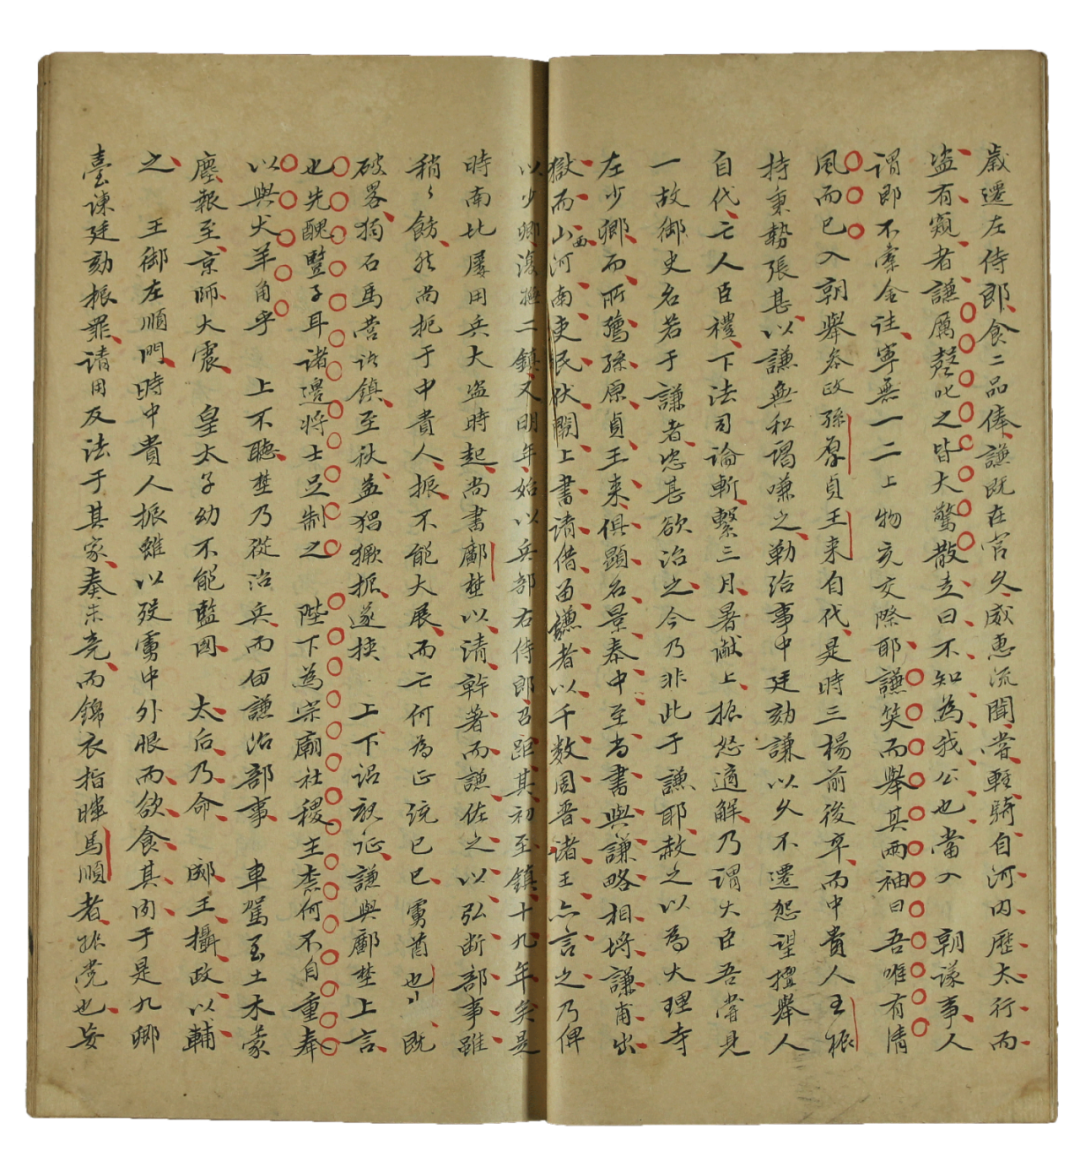 歲遷左侍郎食二品俸謙既在官久威惠流聞嘗輕騎自河内歷太行而
盗有窺者謙厲聲叱之皆大驚散走曰不知為我公也當入　朝議事人
謂即不橐金往寧無一二上物充交際耶謙笑而舉其兩袖曰吾唯有清
風而已入朝舉叅政孫原貞王来自代是時三楊前後卒而中貴人王振
持秉勢張甚以謙無私謁嗛之勅給事中廷劾謙以久不遷怨望擅舉人
自代亡人臣禮下法司論斬繫三月暑讞上振怒適解乃謂大臣吾嘗見
一故御史名若于謙者恣甚欲治之今乃非此于謙耶赦之以為大理寺
左少卿而所薦孫原貞王来俱顯名景泰中至尚書與謙略相埒謙甫出
獄而山西河南吏民伏闕上書請借留謙者以千數周晋諸王亦言之乃俾
以少卿復撫二鎮又明年始以兵部右侍郎召距其初至鎮十九年矣是
時南北屢用兵大盗時起尚書鄺埜以清幹著而謙佐之以弘断部事雖
稍〻飭然尚扼于中貴人振不能大展而亡何為正统己巳虜酋也　既
破畧獨石馬营諸鎮至秋益猖獗振遂挟　上下詔親征謙與鄺埜上言
也先醜豎子耳诸邊将士足制之　陛下為宗廟社稷主柰何不自重奉
以與犬羊角乎　上不聽埜乃從治兵而留謙治部事　車駕至土木蒙
塵報至京師大震　皇太子幼不能監国　太后乃命　郕王攝政以輔
之　王御左順門時中貴人振雖以殁虜中外恨而欲食其肉于是九卿
臺諫廷劾振罪请用反法于其家奏未竟而錦衣指揮馬順者振党也妄